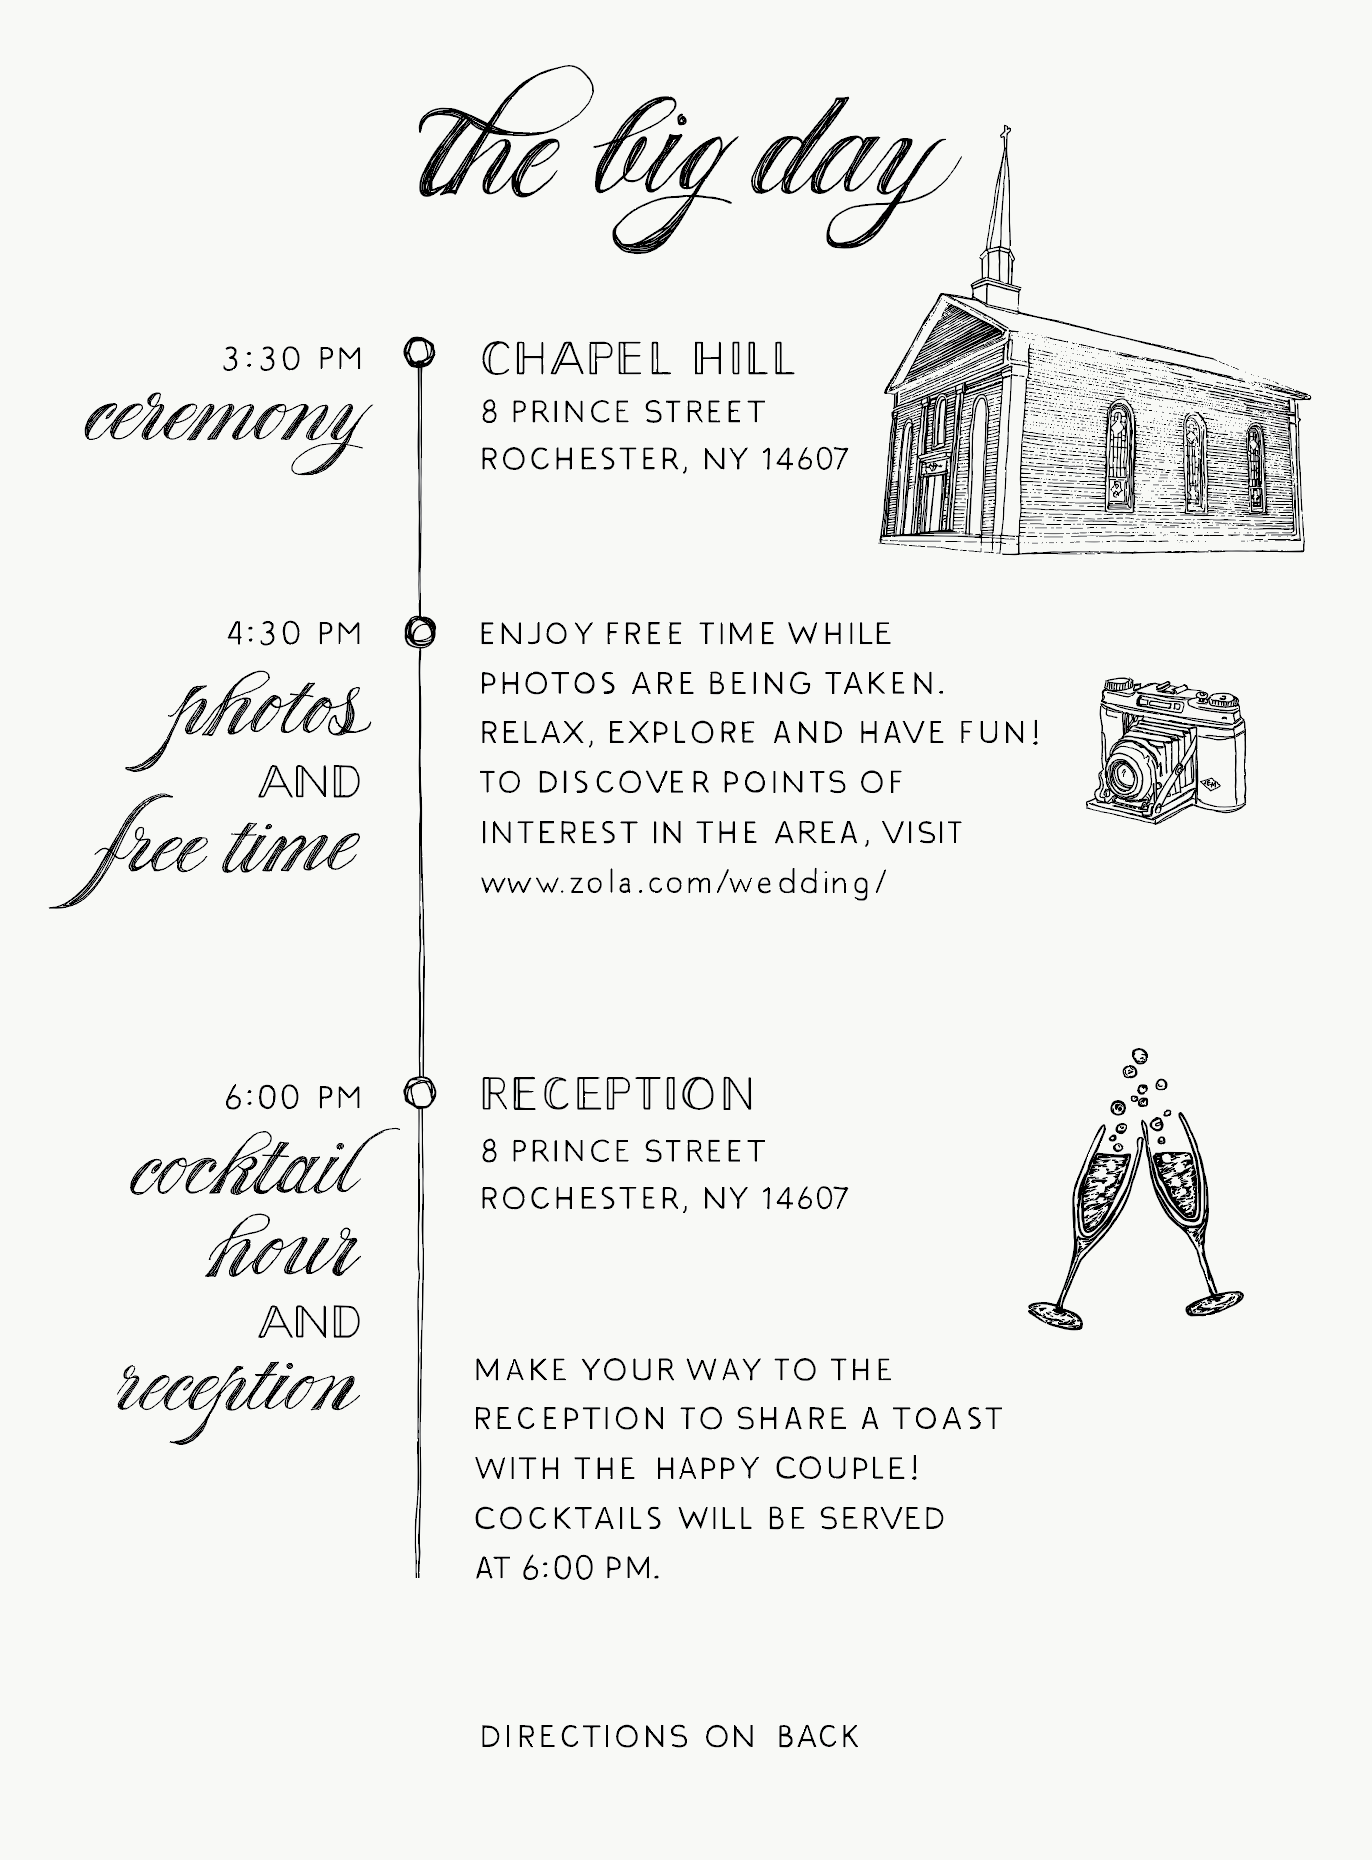 the big day
3:30 PM
ceremony
CHAPEL HILL
8 PRINCE STREET
ROCHESTER, NY 14607
4:30 PM
photos
AND
free time
ENJOY FREE TIME WHILE
PHOTOS ARE BEING TAKEN.
RELAX, EXPLORE AND HAVE FUN!
TO DISCOVER POINTS OF
INTEREST IN THE AREA, VISIT
www.zola.com/wedding/
6:00 PM
cocktail
hour
AND
reception
RECEPTION
8 PRINCE STREET
ROCHESTER, NY 14607
MAKE YOUR WAY TO THE
RECEPTION TO SHARE A TOAST
WITH THE HAPPY COUPLE!
COCKTAILS WILL BE SERVED
AT 6:00 PM.
DIRECTIONS ON BACK